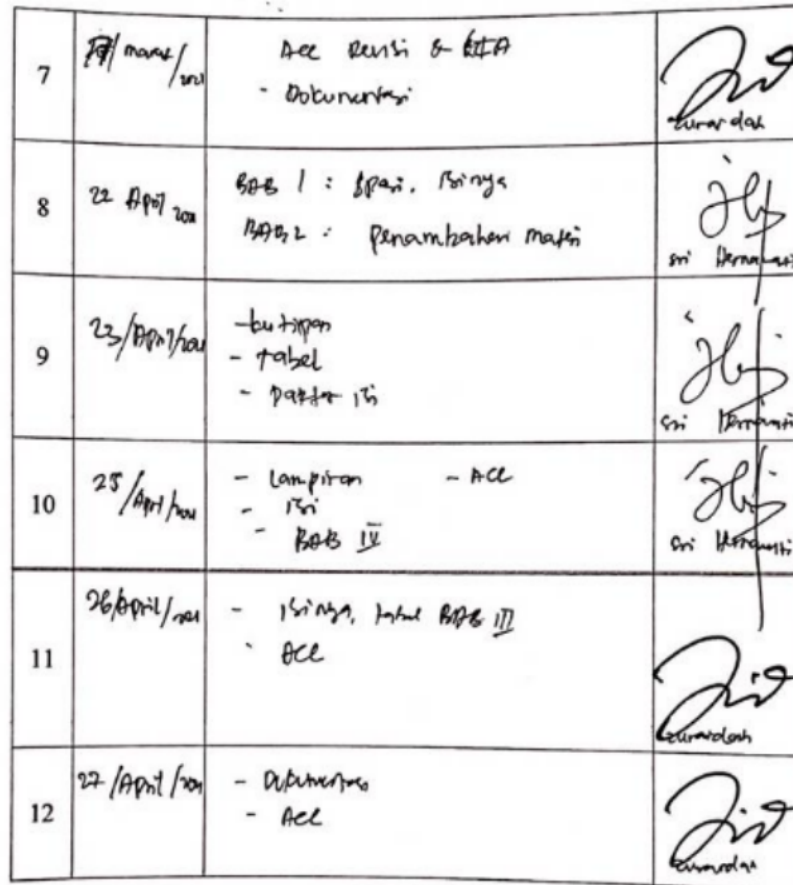 7
maret/2021
Acc Revisi &
- Dokumentasi
zurardah
8
22 April 2021
BAB 1 : spasi, isinya
BAB 2 : penambahan materi
sri Hernawati
9
23/April/2021
- kutipan
- tabel
- Daftar isi
sri Hernawati
10
25/April/2021
- Lampiran - Acc
- isi
- BAB IV
sri Hernawati
11
26/April/2021
- isinya, tabel BAB III
- Acc
zurardah
12
27/April/2021
- Dokumentasi
- Acc
zurardah